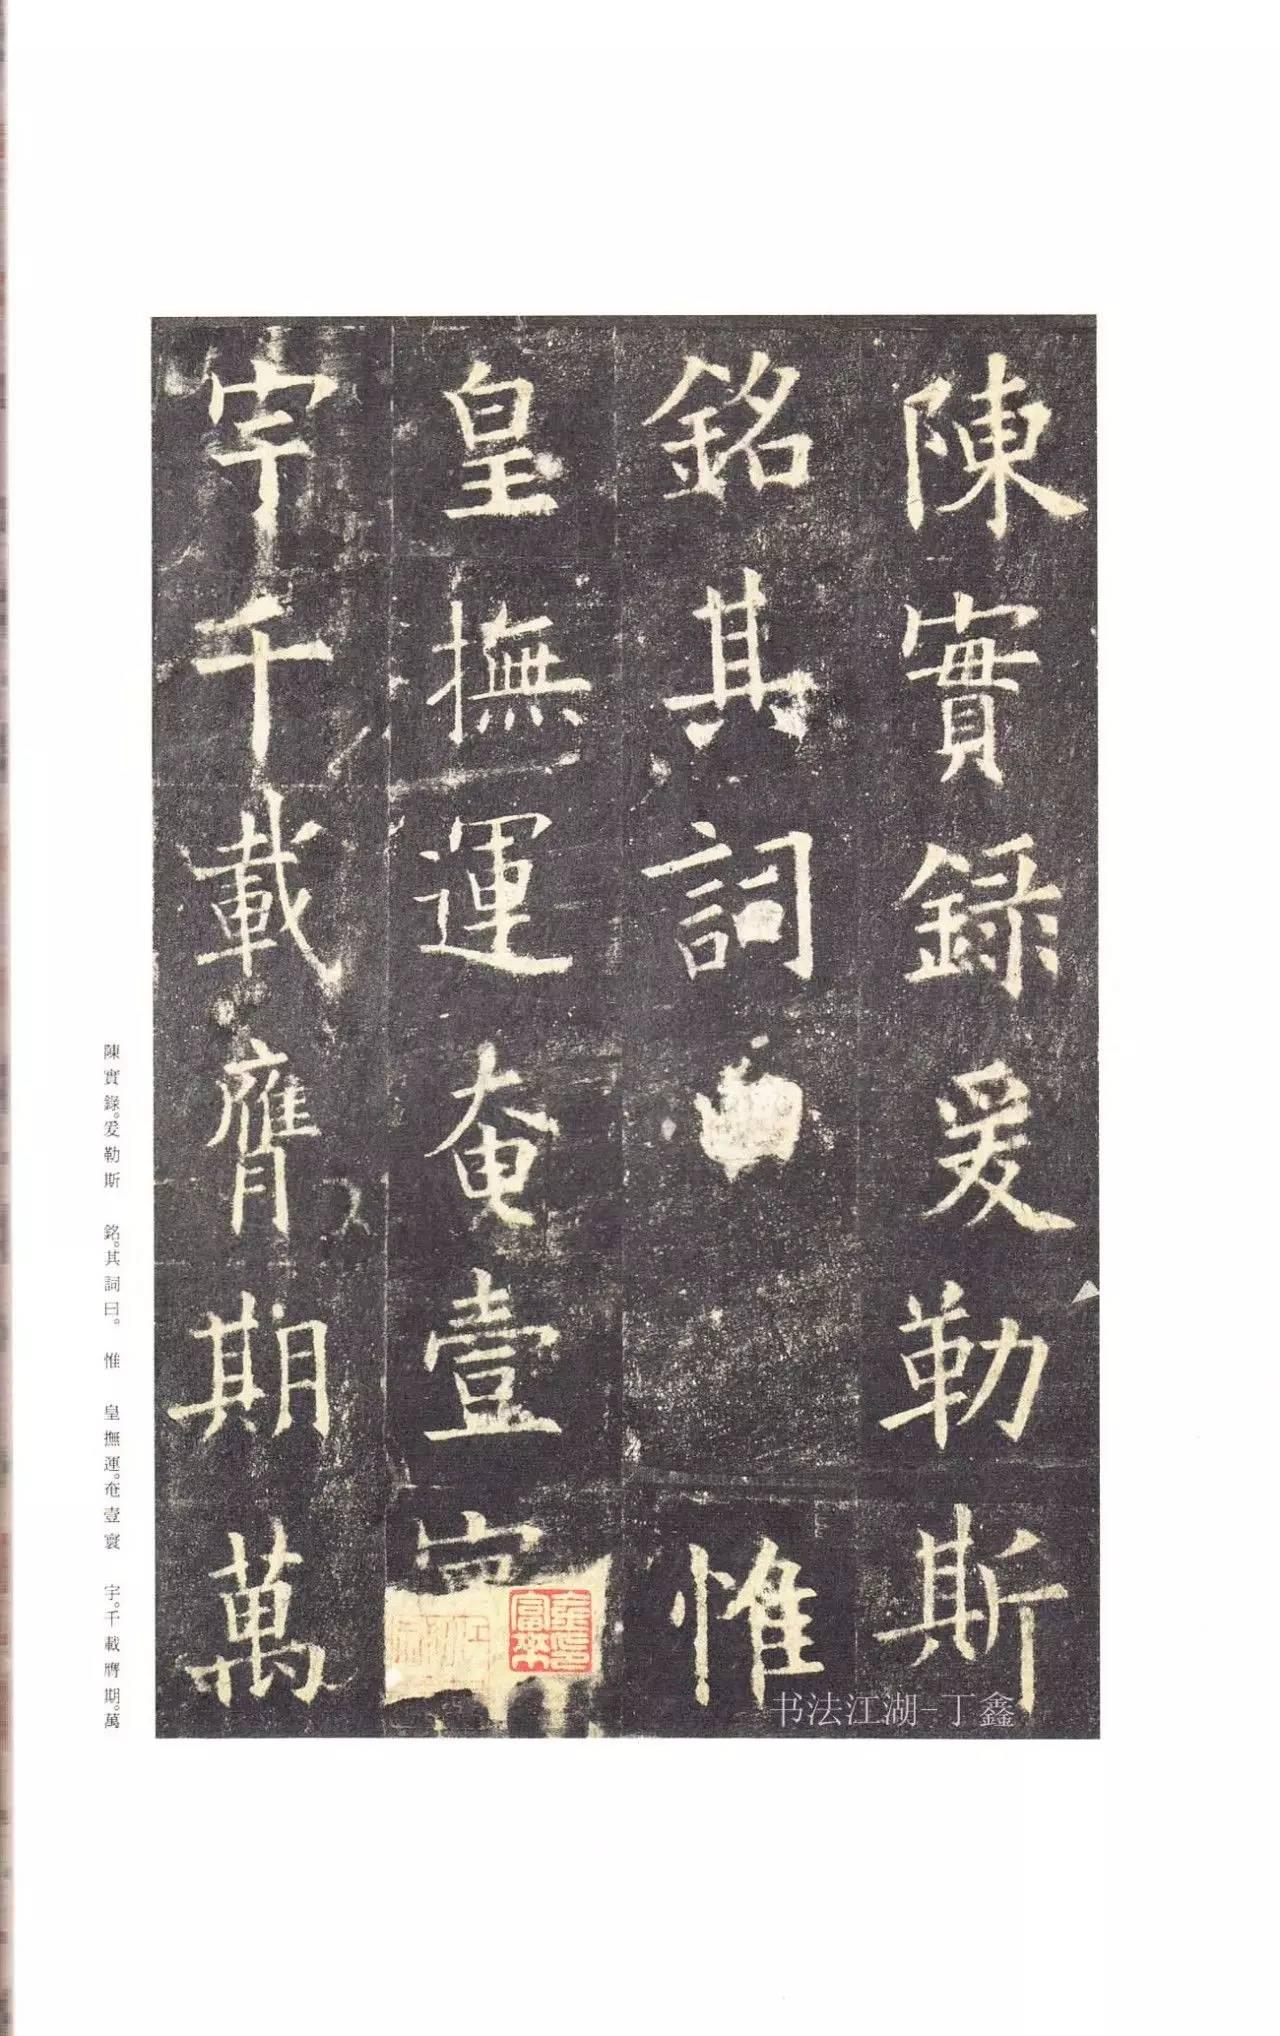 陳實録爰勒斯
銘其詞惟
皇撫運奄壹寰
宇千載膺期萬
陳實錄。爰勒斯 銘。其詞曰。 惟 皇撫運。奄壹寰 宇。千載膺期。萬
书法江湖-丁鑫